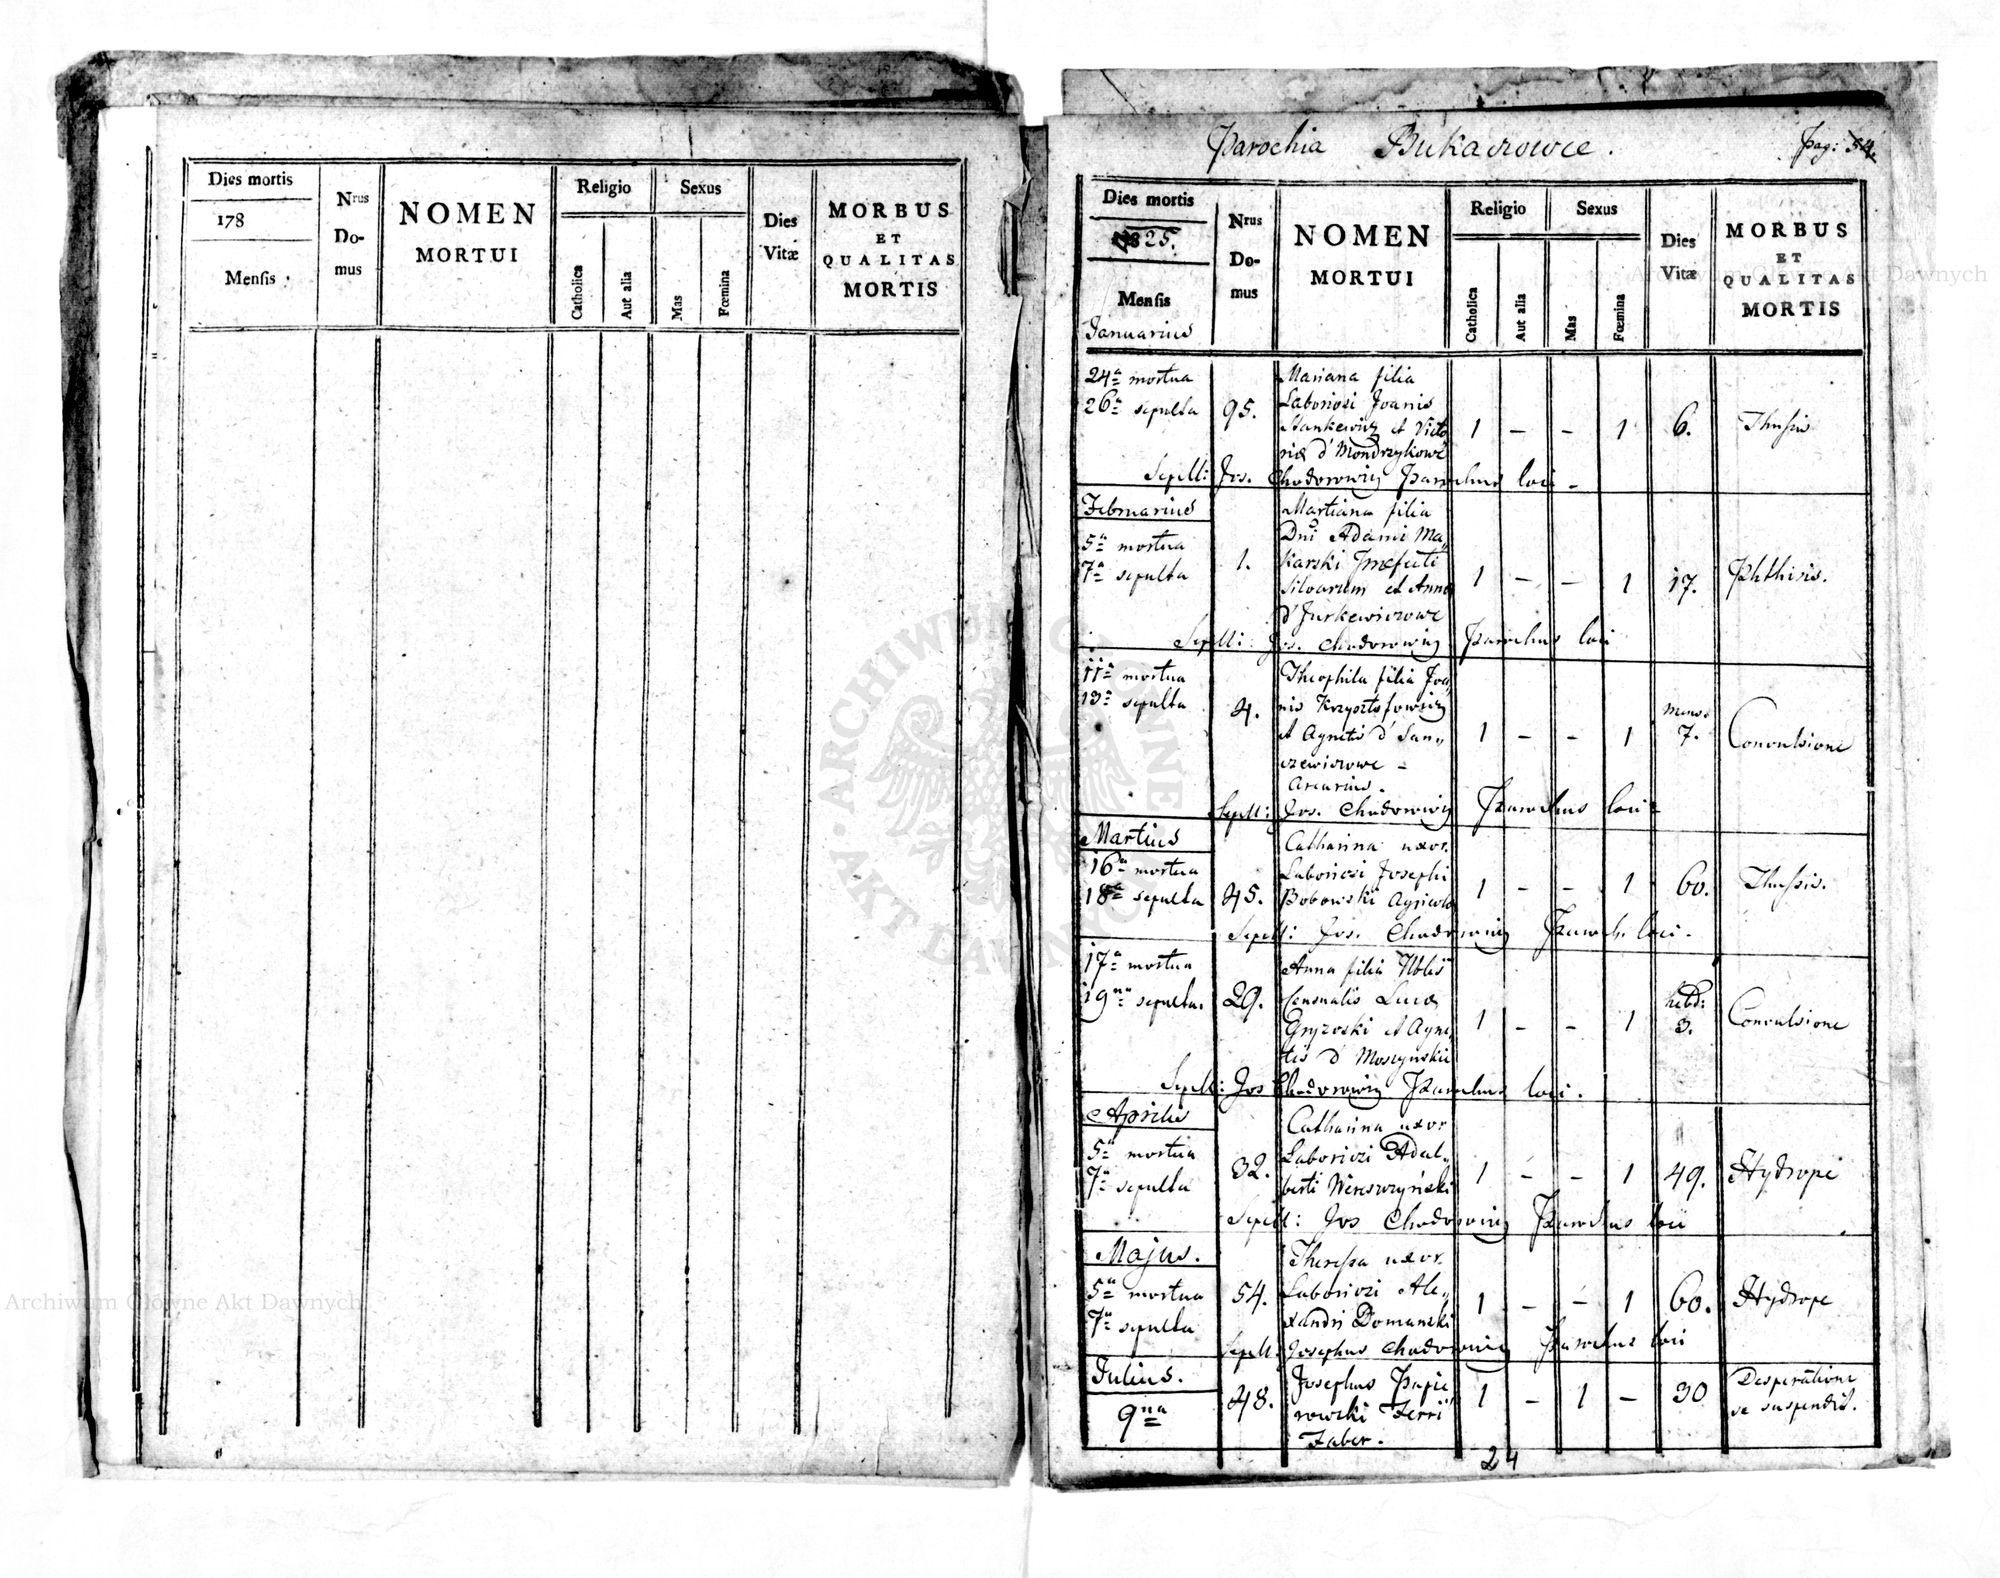 Dies mortis
178
Mensis
Nrus
Do-
mus
NOMEN
MORTUI
Religio
Catholica
Aut alia
Sexus
Mas
Fœmina
Dies
Vitæ
MORBUS
ET
QUALITAS
MORTIS
Parochia Bukaczowce.
Pag: 54.
Dies mortis
1825.
Mensis
Januarius
Nrus
Do-
mus
NOMEN
MORTUI
Religio
Catholica
Aut alia
Sexus
Mas
Fœmina
Dies
Vitæ
MORBUS
ET
QUALITAS
MORTIS
24a mortua
26a sepulta
95.
Mariana filia
Laboriosi Joanis
Stankewicz et Victo
riæ d'Mondrzykowe
1 – – 1
6.
Thussis
Sepell: Jos. Chodorowicz Parochus loci –
Februarius
5a mortua
7a sepulta
1.
Martiana filia
Dni Adami Ma„
karski Præfecti
Silvarum et Anna
d'Jurkewiczowe
1 – – 1
17.
Phthisis.
Sepell: Jos. Chodorowicz Parochus loci
11a mortua
13a sepulta
4.
Theophila filia Joa„
nis Krzysztofowicz
et Agnetis d'San„
czewiczowe –
Arcarius.
1 – – 1
Mens:
7.
Convulsione
Sepell: Jos. Chodorowicz Parochus loci –
Martius
16a mortua
18a sepulta
45.
Catharina uxor
Laboriosi Josephi
Bobowski Agricola
1 – – 1
60.
Thussis.
Sepell: Jos. Chodorowicz Paroch: loci.
17a mortua
19na sepulta.
29.
Anna filia Nblis
Censualis Lucæ
Gryzoski et Agne„
tis d'Moszynskie
1 – – 1
hebd:
3.
Convulsione
Sepell: Jos Chodorowicz Parochus loci.
Aprilis
5a mortua
7a sepulta
32.
Catharina uxor
Laboriosi Adal„
berti Wereszczyński
1 – – 1
49.
Hydrope
Sepell: Jos Chodorowicz Parochus loci
Majus.
5a mortua
7a sepulta
54.
Theressa uxor
Laboriosi Ale„
xandri Domanski
1 – – 1
60.
Hydrope
Sepell: Josephus Chodorowicz Parochus loci
Julius.
9na
48.
Josephus Papie
rowski Ferri
Faber.
1 – 1 –
30
Desperatione
se suspendit.
24
Archiwum Główne Akt Dawnych
Archiwum Główne Akt Dawnych
ARCHIWUM GŁÓWNE
AKT DAWNYCH